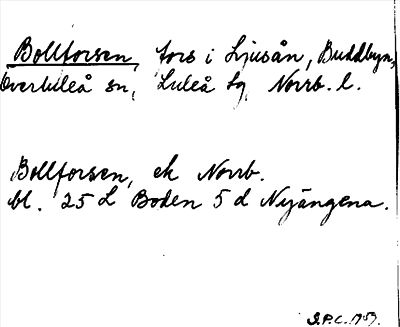 Bollforsen, fors i Ljusån, Buddbyn,
Överluleå sn, Luleå tg, Norrb. l.
Bollforsen, ek Norrb.
bl. 25 L Boden 5 d Nyängena.